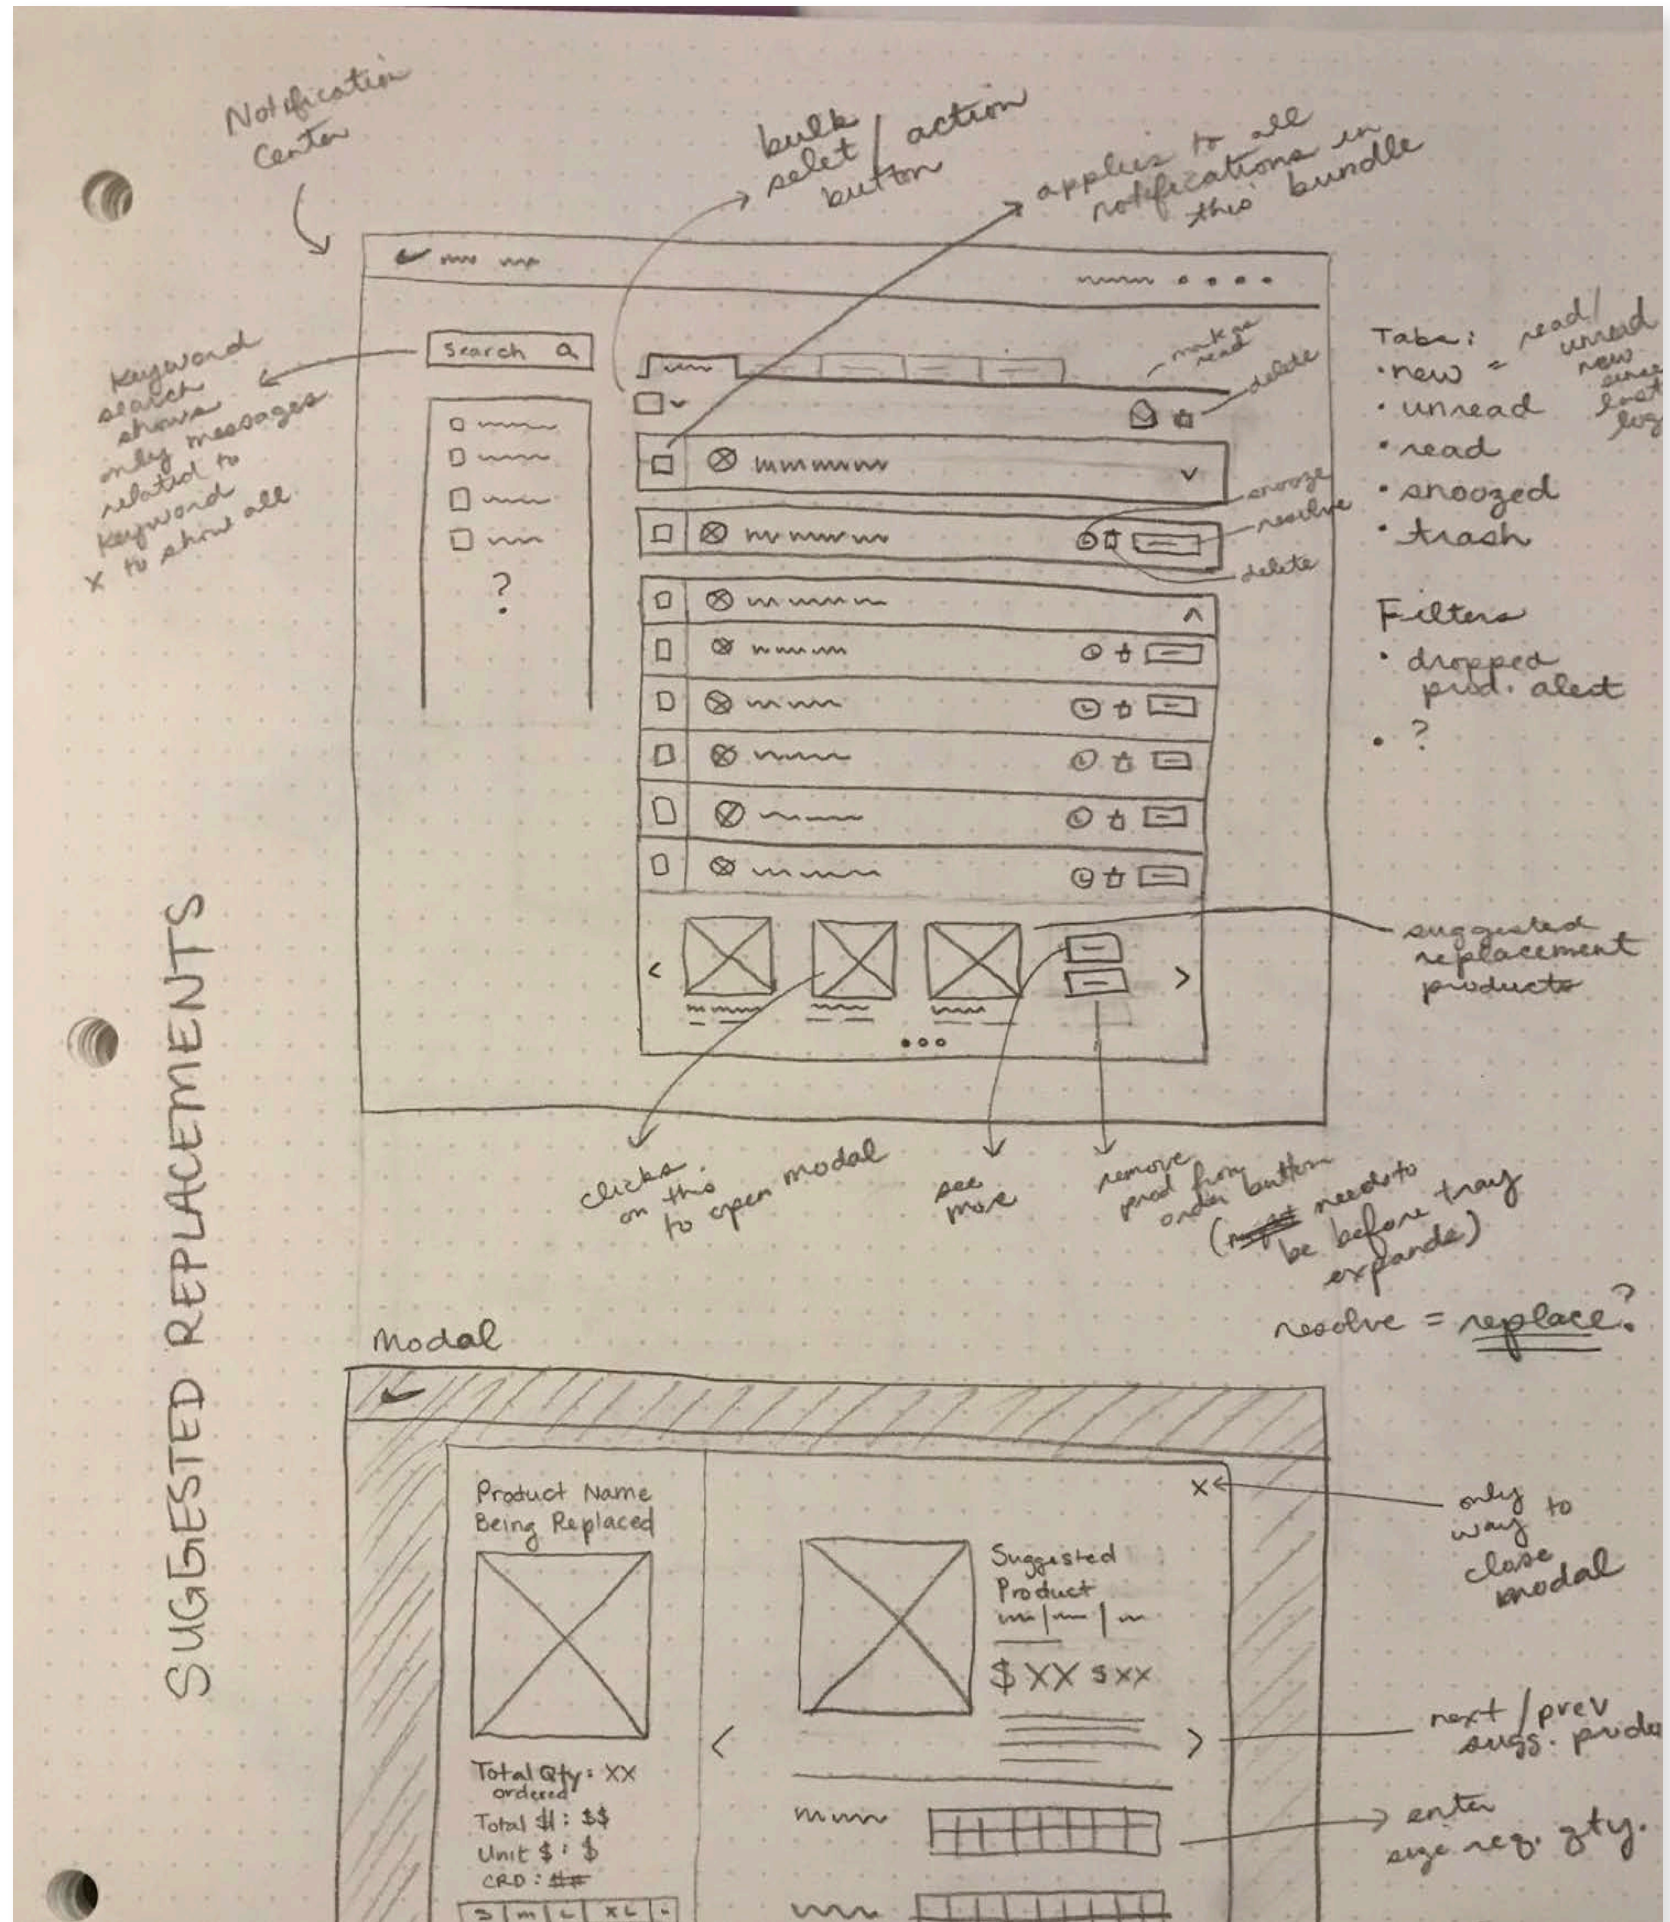 Notification
Center
bulk
selet / action
button
applies to all
notifications in
this bundle
keyword
search
shows
only messages
related to
keyword
x to show all
Search
mark as
read
delete
snooze
resolve
delete
?
Tabs:
• new = read/
unread
new
since
last
log
• unread
• read
• snoozed
• trash
Filters
• dropped
prod. alert
• ?
suggested
replacement
products
clicks
on this
to open modal
see
more
remove
prod from
order button
( needs to
be before tray
expands)
resolve = replace?
SUGGESTED REPLACEMENTS
Modal
Product Name
Being Replaced
Total Qty: XX
ordered
Total $: $$
Unit $: $
CRD: ##
S M L XL
X
Suggested
Product
$XX $XX
<
>
only
way to
close
modal
next / prev
sugg. produ
enter
size req. qty.